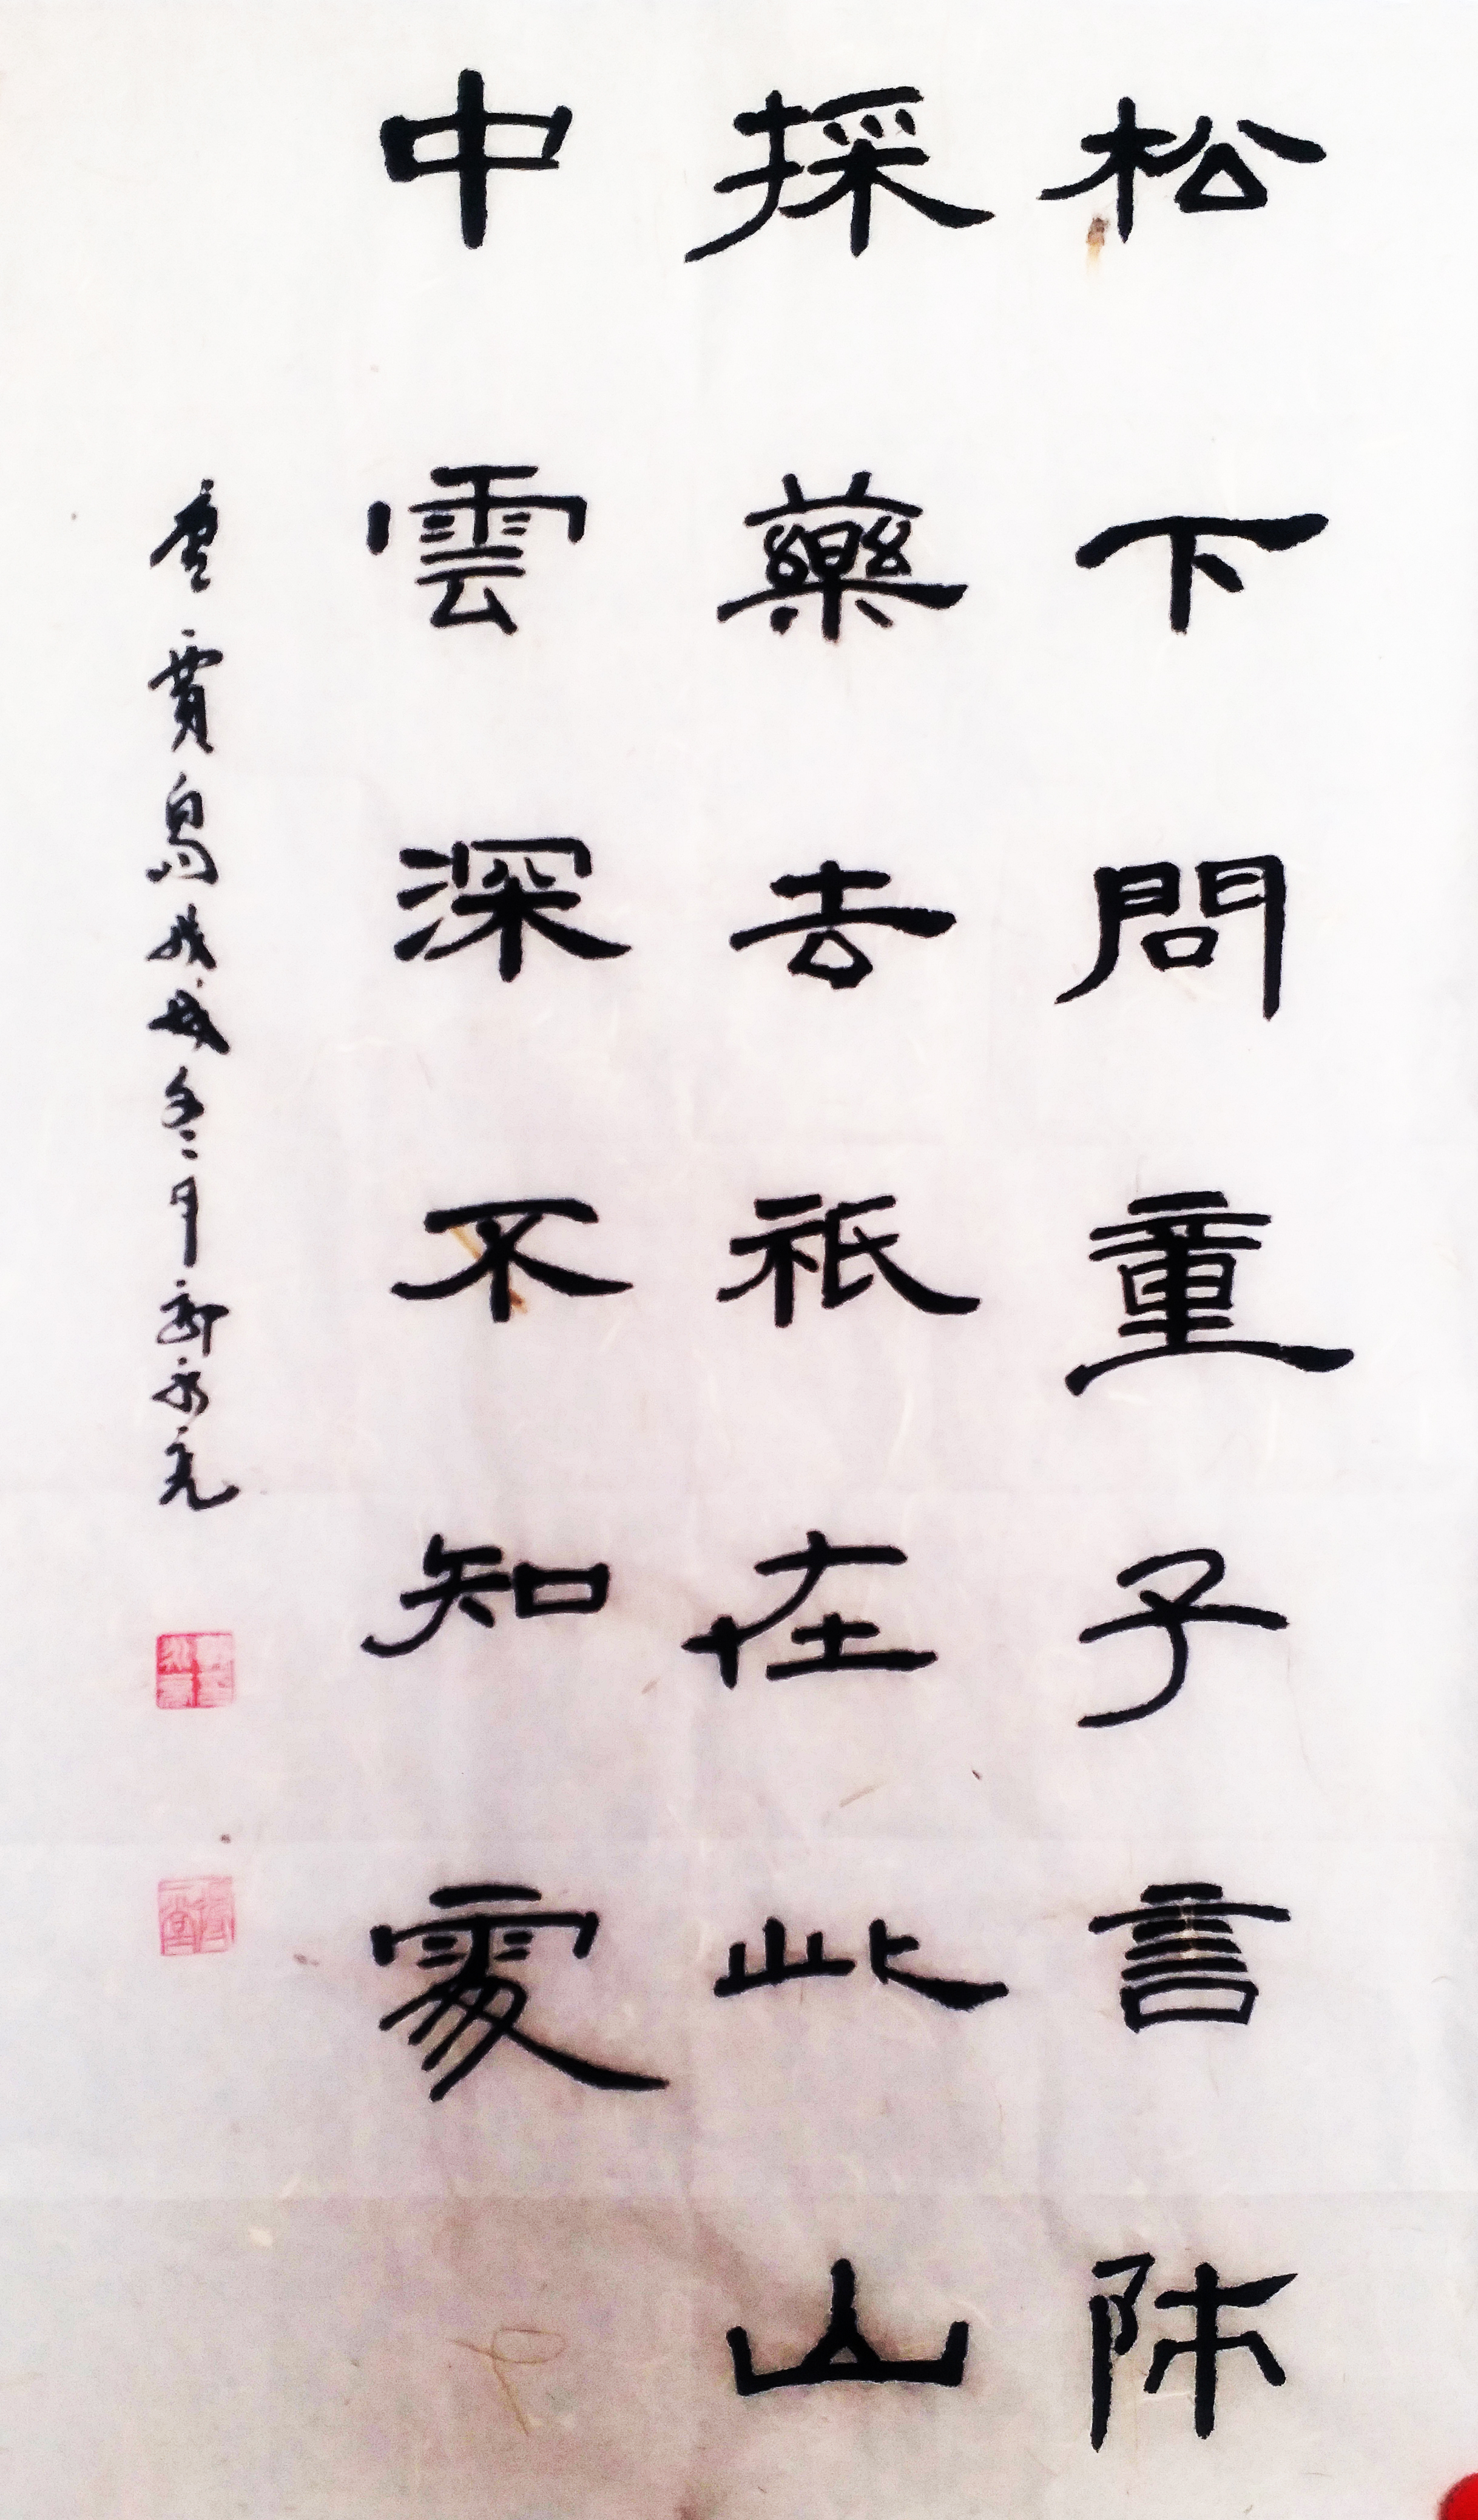 松下問童子言師
採藥去祇在此山
中雲深不知處
唐賈島 戊戌冬月郭永亮